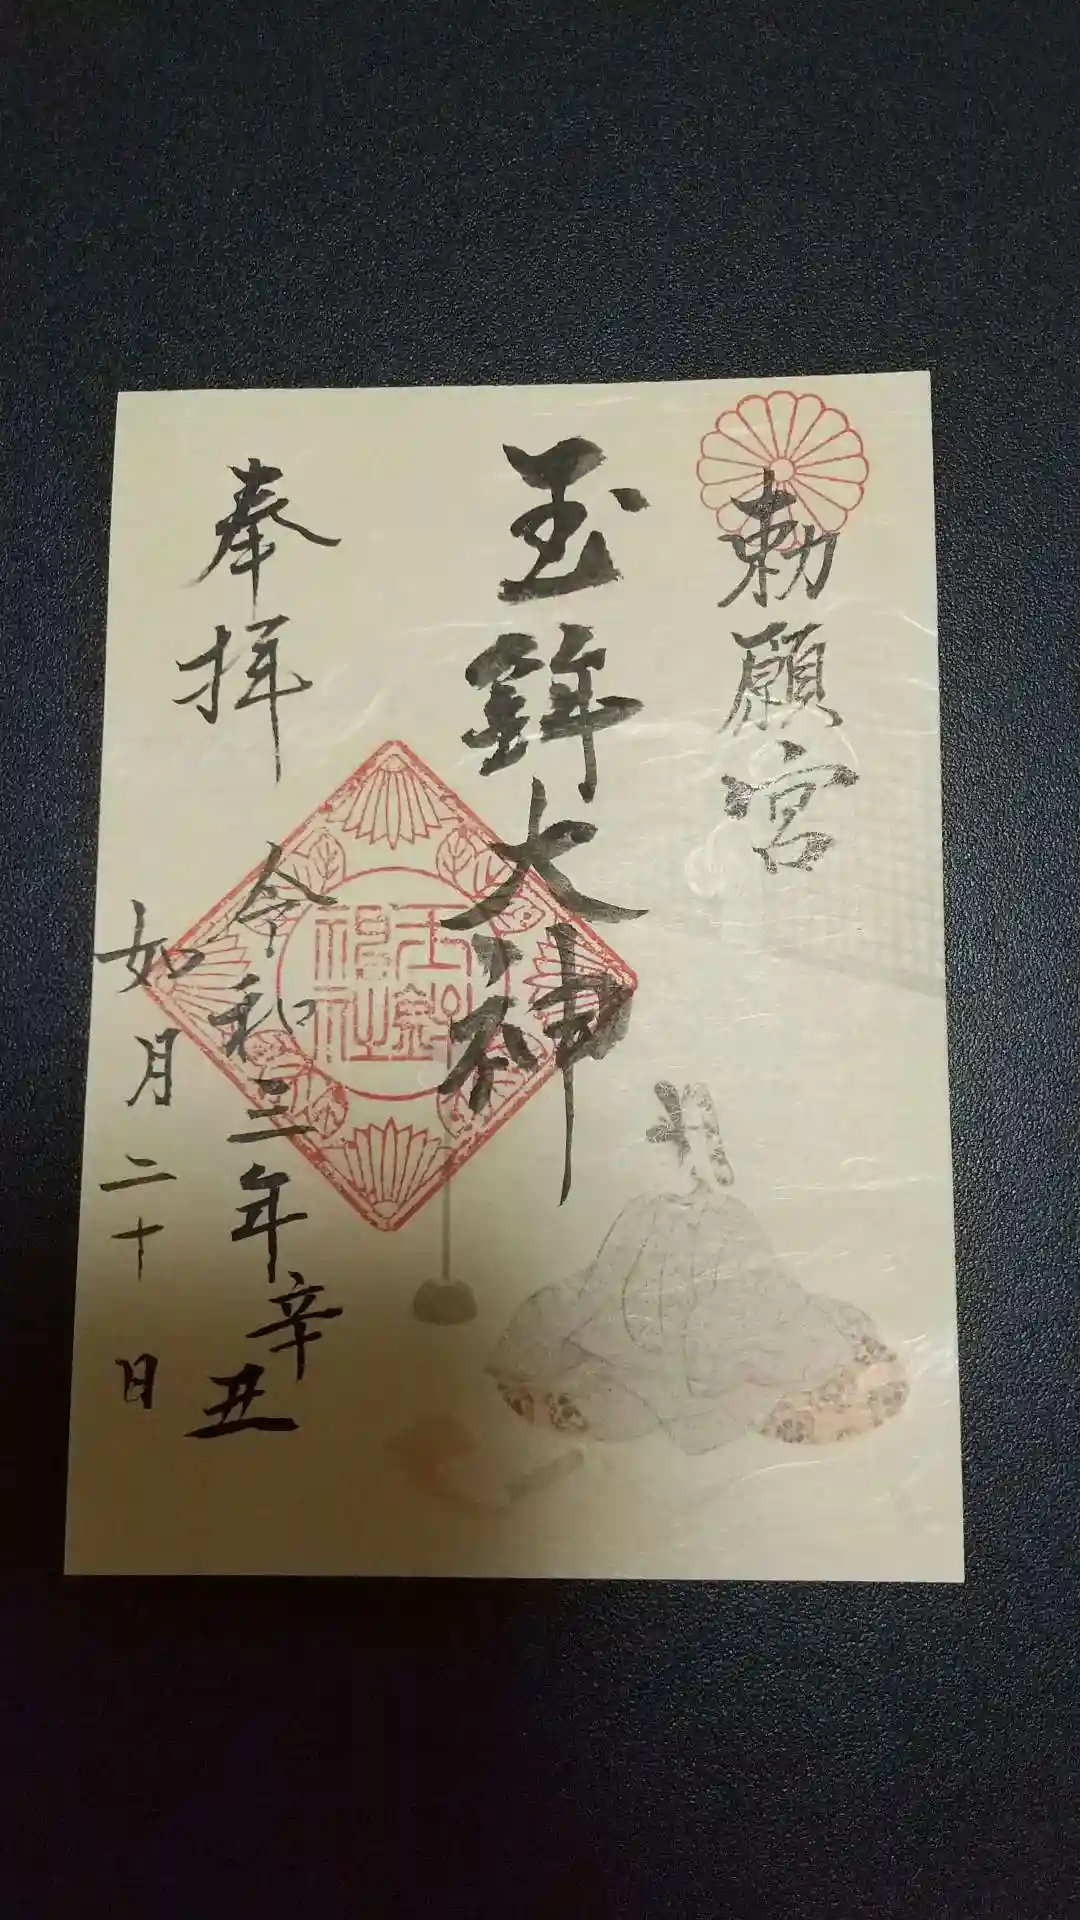 勅願宮
玉鉾大神
奉拝
令和三年辛丑
如月二十日
玉鉾
神社